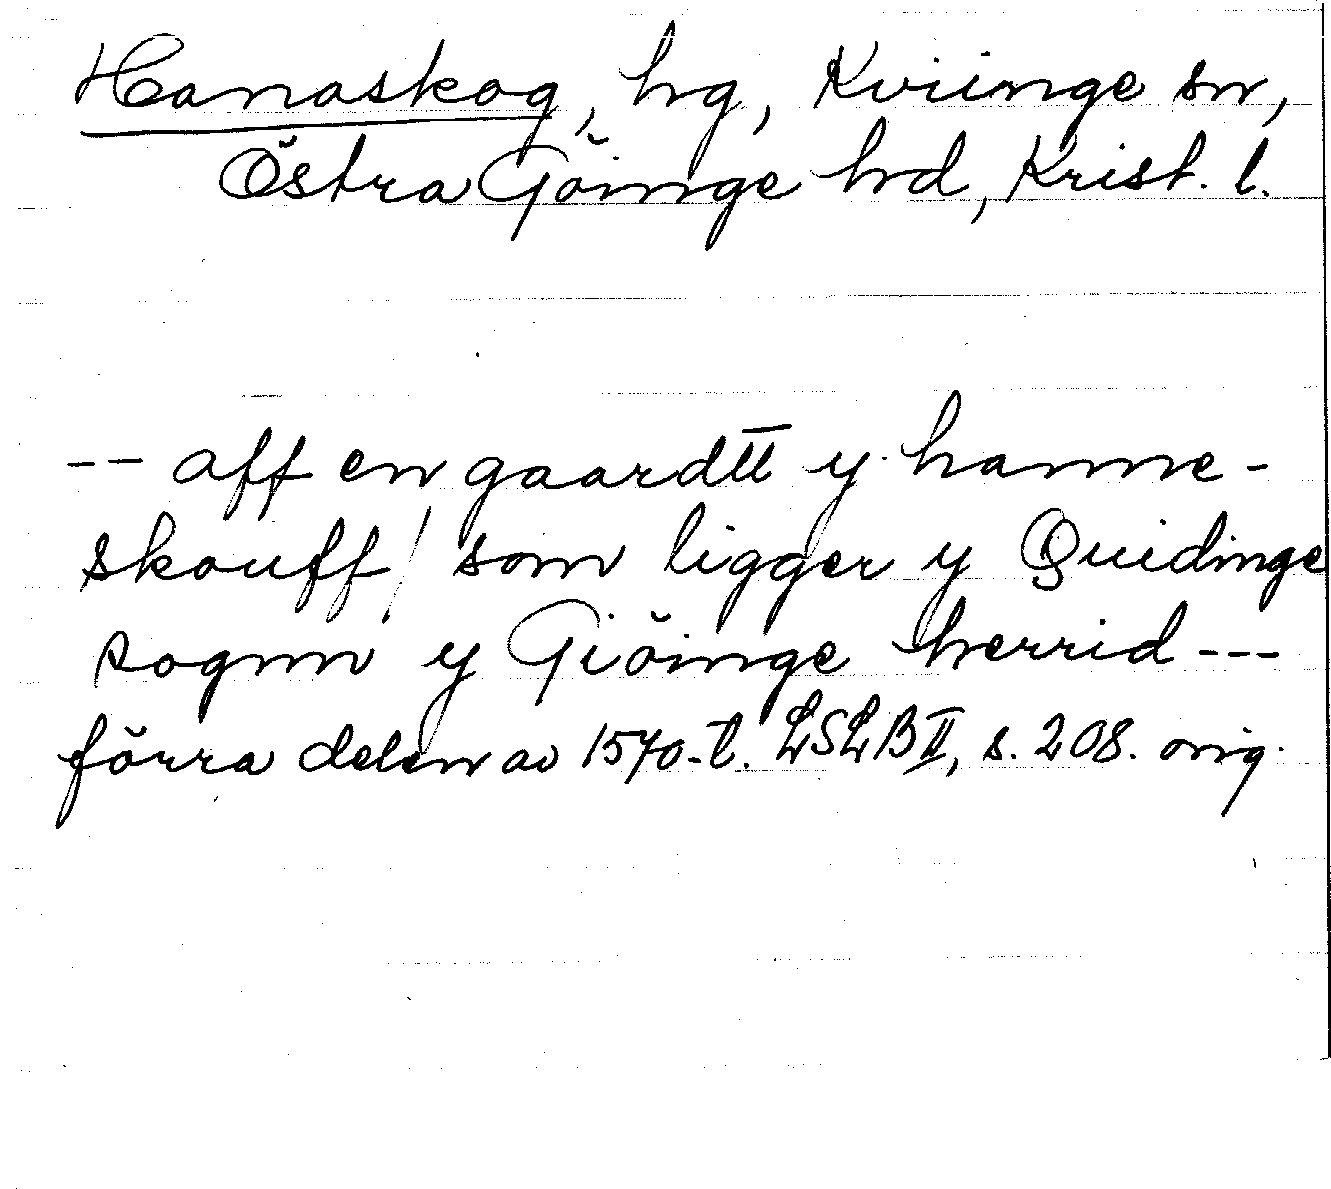 Hanaskog, hg, Kviinge sn,
Östra Göinge hd, Krist. l.
-- aff en gaardtt y hanne-
skouff/ som ligger y Quidinge
sognn y Giöinge herrid ---
förra delen av 1570-t. LSLB II, s. 208. orig.